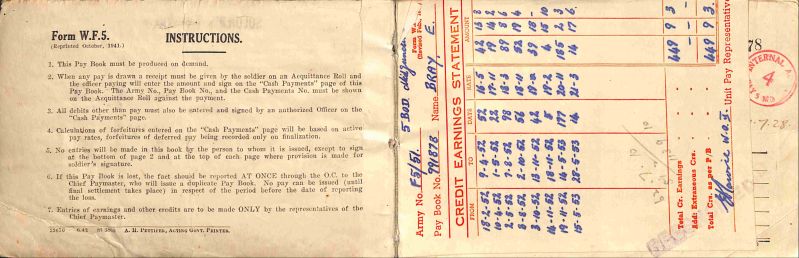 Form W.F.5.
(Reprinted October, 1941.)
INSTRUCTIONS.
1. This Pay Book must be produced on demand.
2. When any pay is drawn a receipt must be given by the soldier on an Acquittance Roll and
the officer paying will enter the amount and sign on the "Cash Payments" page of this
Pay Book. The Army No., Pay Book No., and the Cash Payments No. must be shown
on the Acquittance Roll against the payment.
3. All debits other than pay must also be entered and signed by an authorized Officer on the
"Cash Payments" page.
4. Calculations of forfeitures entered on the "Cash Payments" page will be based on active
pay rates, forfeitures of deferred pay being recorded only on finalization.
5. No entries will be made in this book by the person to whom it is issued, except to sign
at the bottom of page 2 and at the top of each page where provision is made for
soldier's signature.
6. If this Pay Book is lost, the fact should be reported AT ONCE through the O.C. to the
Chief Paymaster, who will issue a duplicate Pay Book. No pay can be issued (until
final settlement takes place) in respect of the period before the date of reporting
the loss.
7. Entries of earnings and other credits are to be made ONLY by the representatives of the
Chief Paymaster.
A. H. PETTIFER, ACTING GOVT. PRINTER.
Army No. F5/51. 5 BOD
Pay Book No. 991878 Name BRAY E.
CREDIT EARNINGS STATEMENT
FROM TO DAYS RATE AMOUNT
13-2-52 9-4-52 52 16-5
10-4-52 1-5-52 22 17-11
2-5-52 7-8-52 98 18-3
8-8-52 2-10-52 56
3-10-52 13-11-52 42
14-11-52 18-11-52 5
19-11-52 14-5-53 177 20-11
15-5-53 28-5-53 14 21-3
Total Cr. Earnings 449 9 3
Add: Extraneous Crs. - - -
Total Crs. as per P/B 449 9 3.
Unit Pay Representative
78
INTERNAL A
4